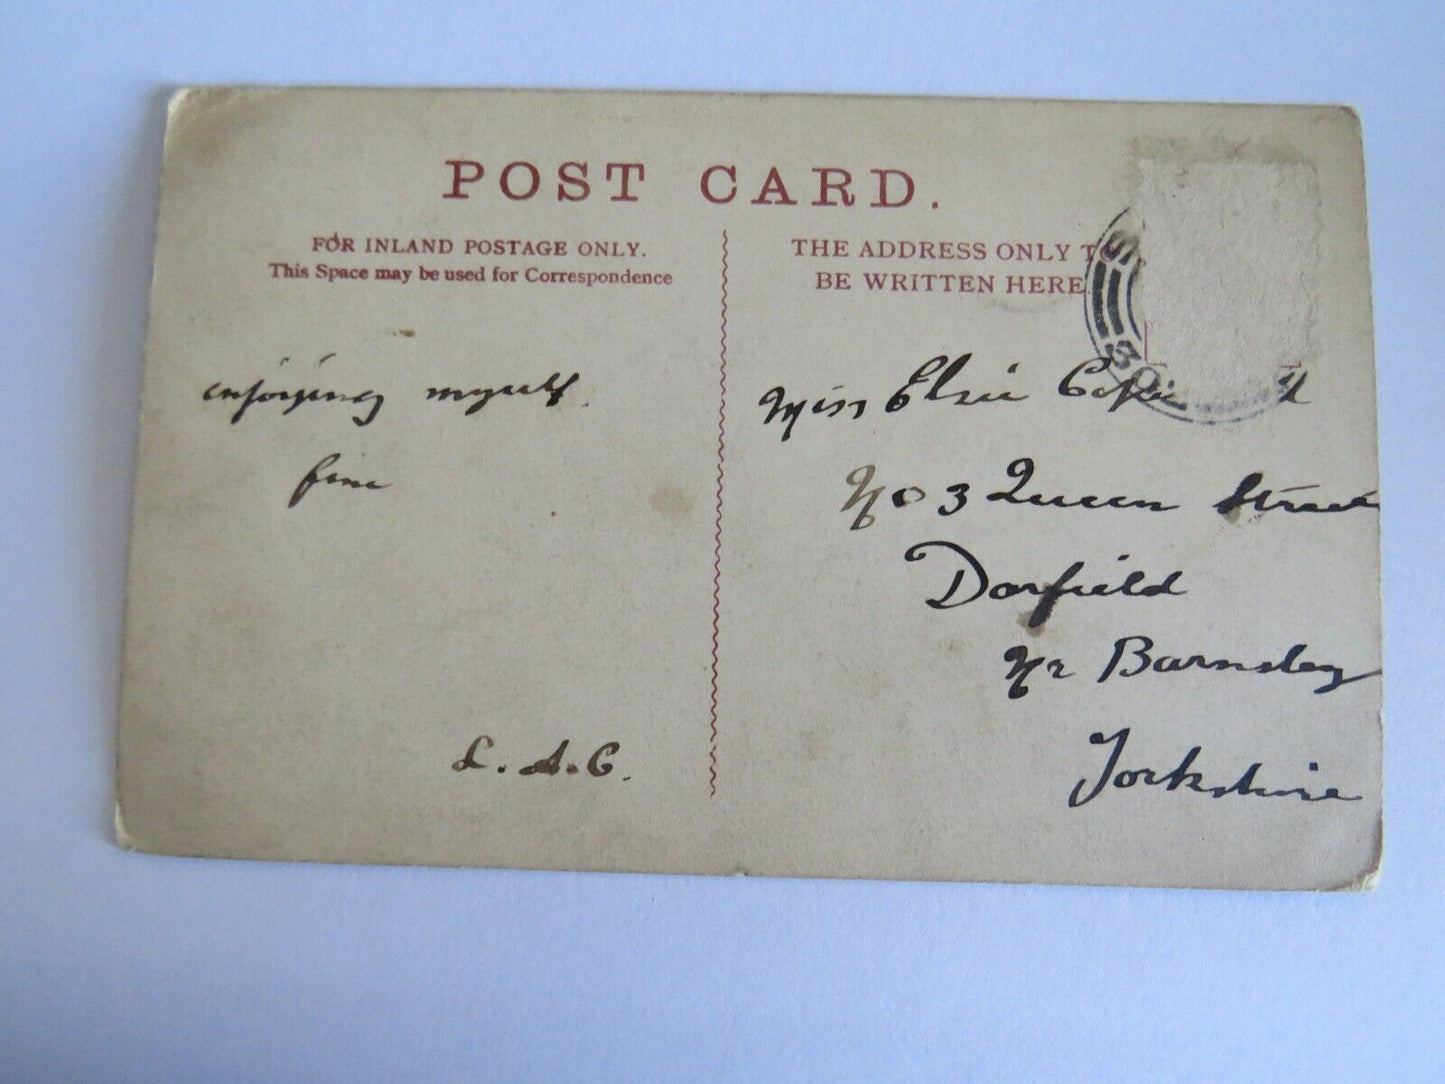 POST CARD.
FOR INLAND POSTAGE ONLY.
This Space may be used for Correspondence
THE ADDRESS ONLY T
BE WRITTEN HERE
enjoying myself.
fine
L. A. C.
Miss Elsie
No 3 Queen Street
Darfield
Nr Barnsley
Yorkshire